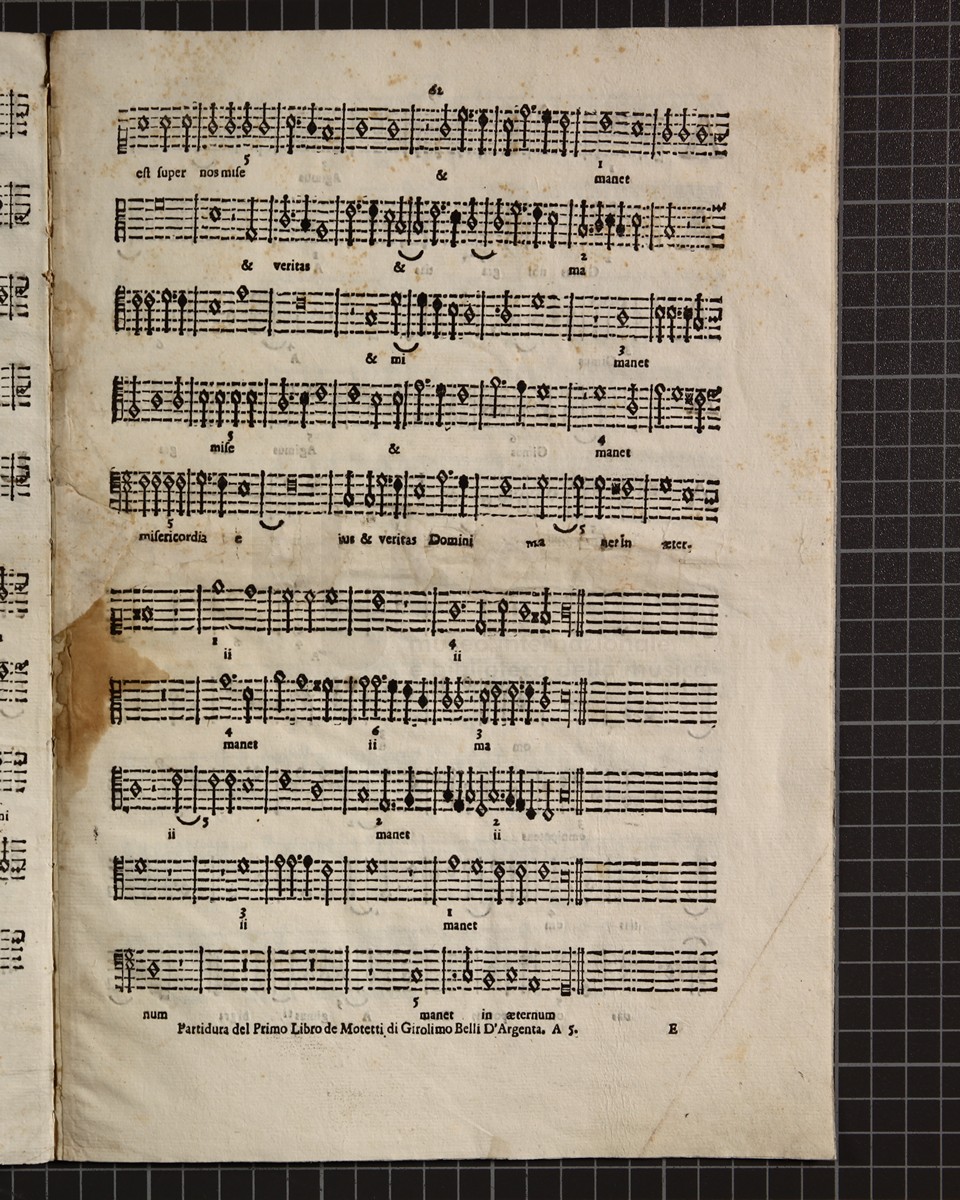 61
5 1
est super nos mise & manet
2
& veritas & ma
3
& mi manet
5 4
mise & manet
5 5
misericordia e ius & veritas Domini ma net in æter-
1 4
ii ii
4 6 3
manet ii ma
5 2 2
ii manet ii
3 1
ii manet
5
num manet in æternum
Partidura del Primo Libro de Motetti di Girolimo Belli D'Argenta. A 5. E